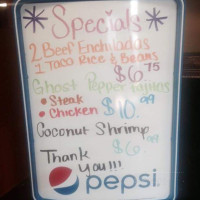 Specials
2 Beef Enchiladas
1 Taco Rice & Beans
$6.75
Ghost Pepper Fajitas
• Steak
• Chicken $10.99
Coconut Shrimp
$6.99
Thank
You!!!
pepsi